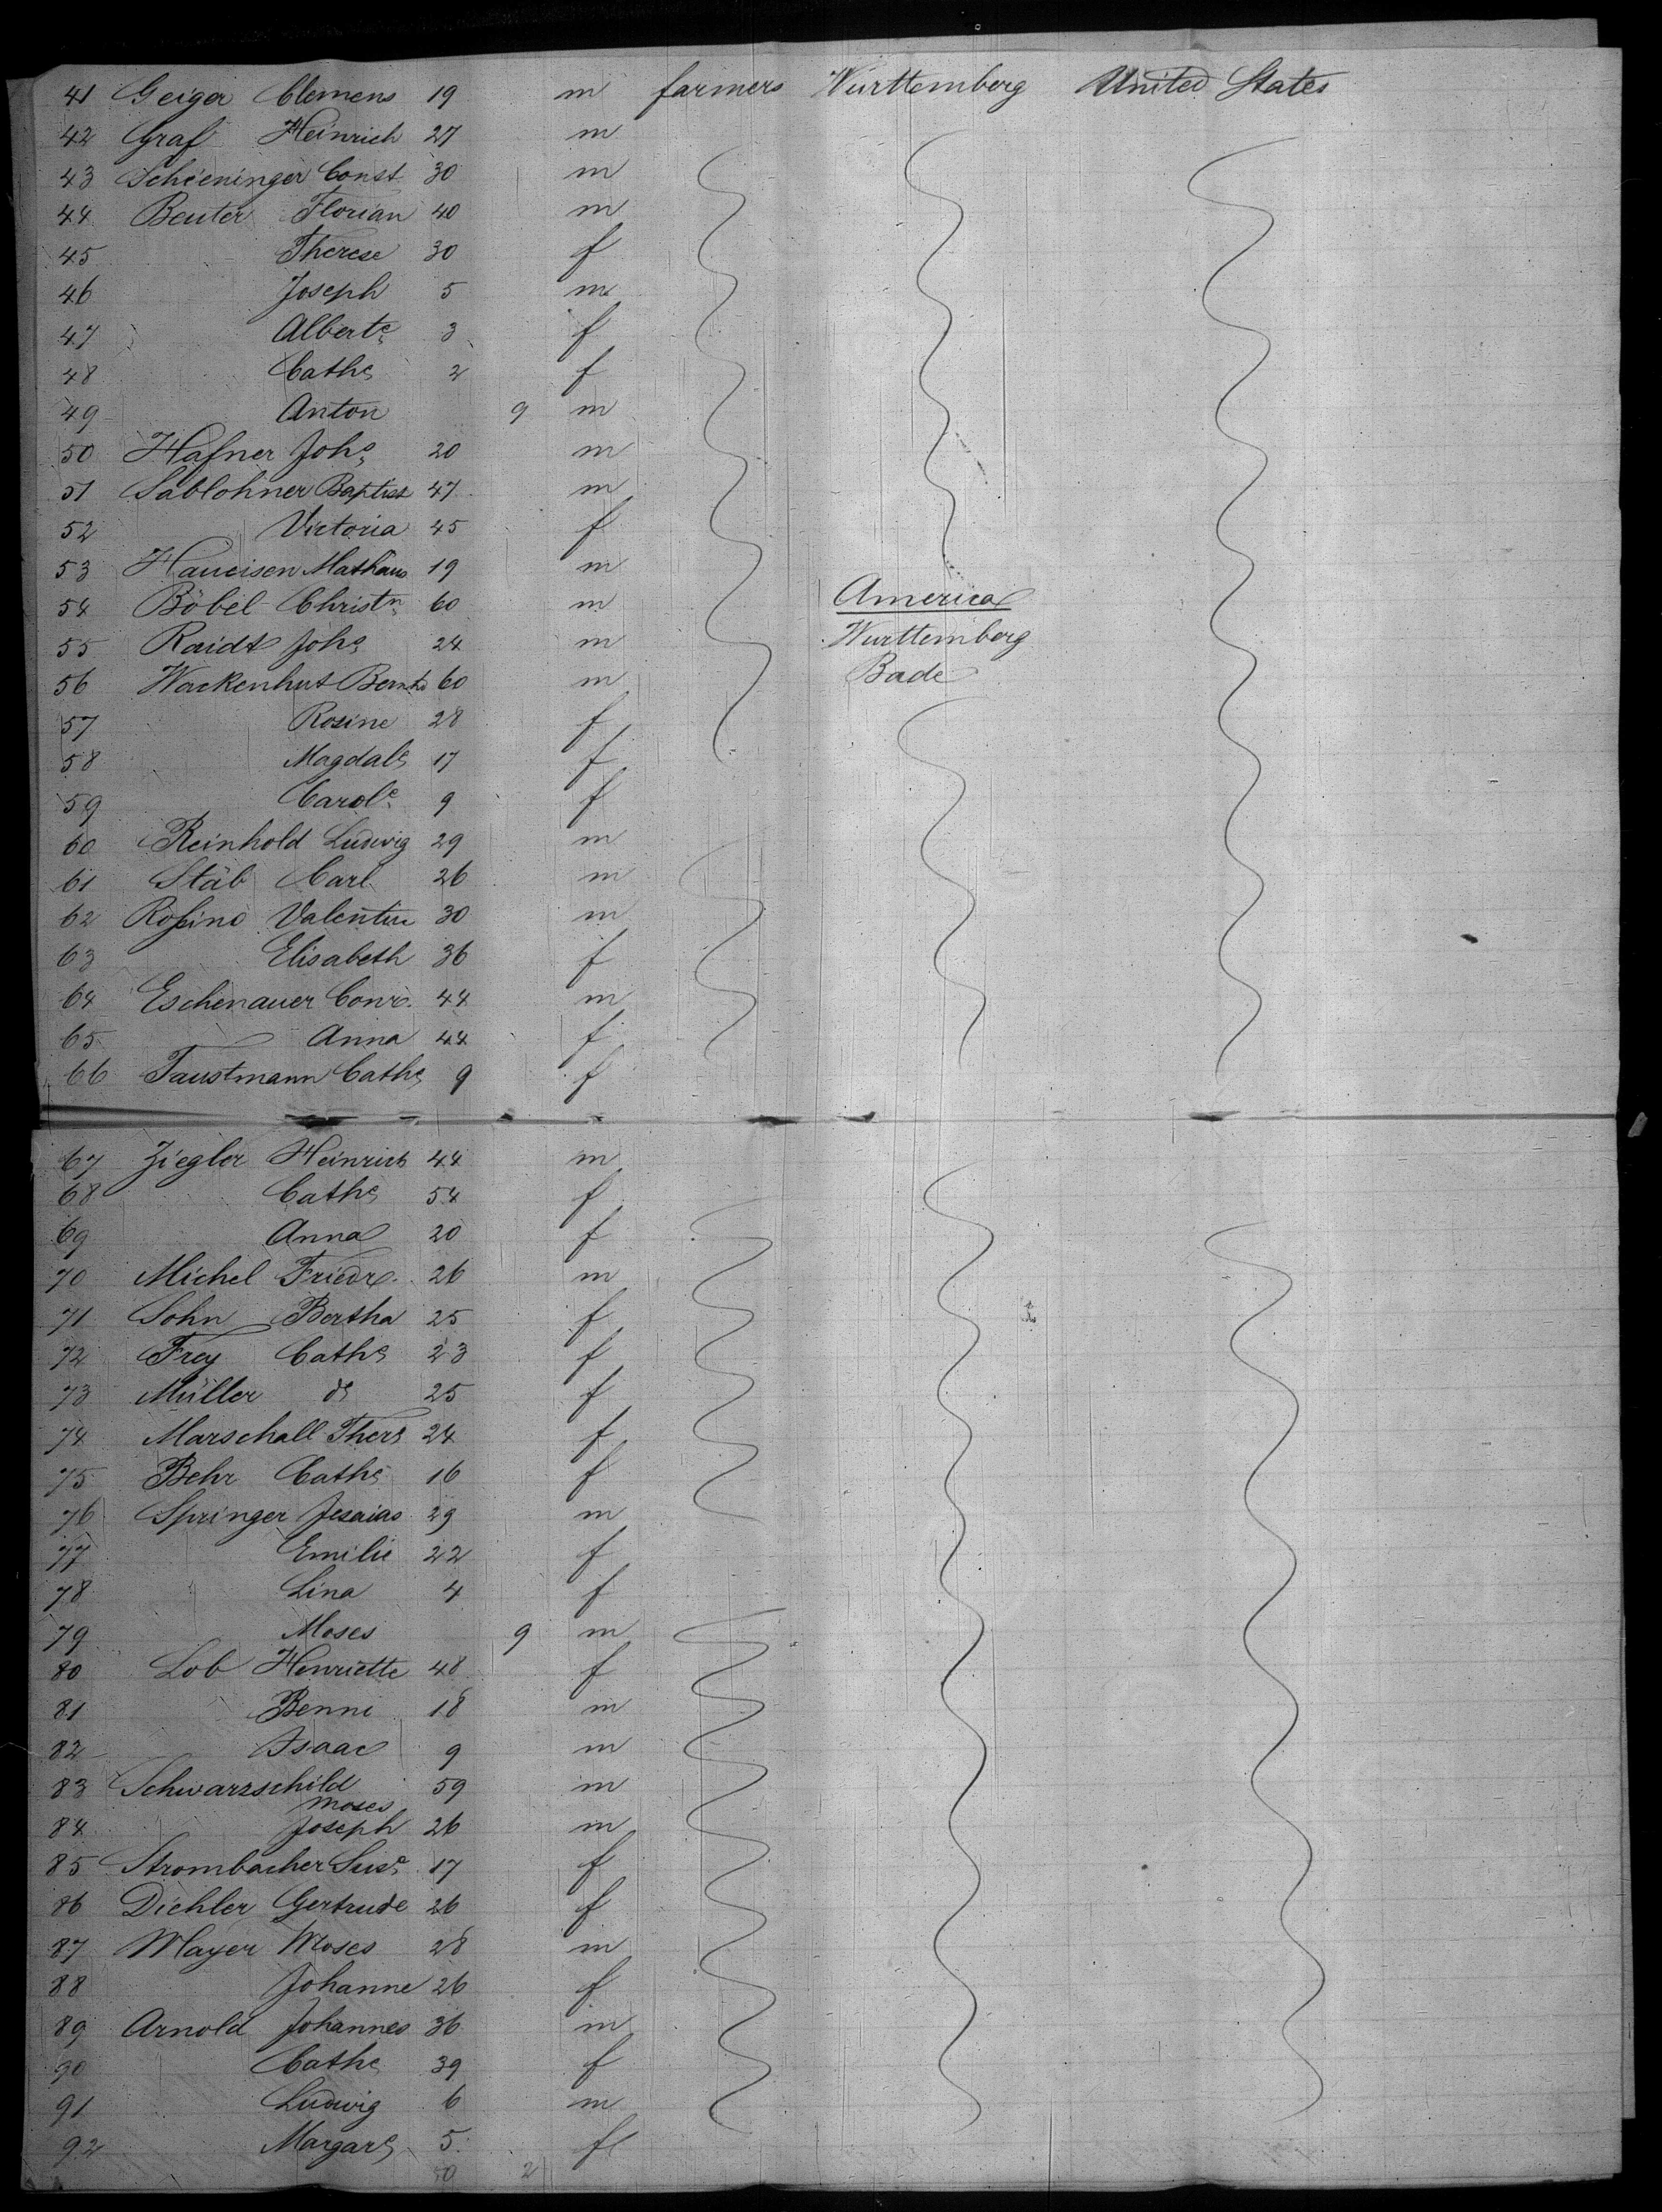 41 Geiger Clemens 19 m farmers Württemberg United States
42 Graf Heinrich 27 m
43 Schieninger Const. 30 m
44 Beuter Florian 40 m
45 Therese 30 f
46 Joseph 5 m
47 Albert<sup>e</sup> 3 f
48 Cath<sup>e</sup> 2 f
49 Anton 9 m
50 Hafner Joh<sup>s</sup> 20 m
51 Sablohner Baptist 47 m
52 Victoria 45 f
53 Haueisen Mathäus 19 m
54 Böbel Christ<sup>n</sup> 60 m America
55 Raidt Joh<sup>s</sup> 24 m Württemberg
56 Wackenhut Bernhd 60 m Bade
57 Rosine 28 f
58 Magdal<sup>e</sup> 17 f
59 Carol<sup>e</sup> 9 f
60 Reinhold Ludwig 29 m
61 Stäb Carl 26 m
62 Roßino Valentin 30 m
63 Elisabeth 36 f
64 Eschenauer Conr. 44 m
65 Anna 44 f
66 Faustmann Cath<sup>e</sup> 9 f
67 Ziegler Heinrich 44 m
68 Cath<sup>e</sup> 54 f
69 Anna 20 f
70 Michel Friedr. 26 m
71 Sohn Bertha 25 f
72 Frey Cath<sup>e</sup> 23 f
73 Müller d<sup>o</sup> 25 f
74 Marschall Thers 24 f
75 Behr Cath<sup>e</sup> 16 f
76 Springer Jesaias 29 m
77 Emilie 22 f
78 Lina 4 f
79 Moses 9 m
80 Lob Henriette 48 f
81 Benni 18 m
82 Isaac 9 m
83 Schwarzschild Moses 59 m
84 Joseph 26 m
85 Strombacher Sus<sup>e</sup> 17 f
86 Dichler Gertrude 26 f
87 Mayer Moses 28 m
88 Johanne 26 f
89 Arnold Johannes 36 m
90 Cath<sup>e</sup> 39 f
91 Ludwig 6 m
92 Margar<sup>e</sup> 5 f
50 2